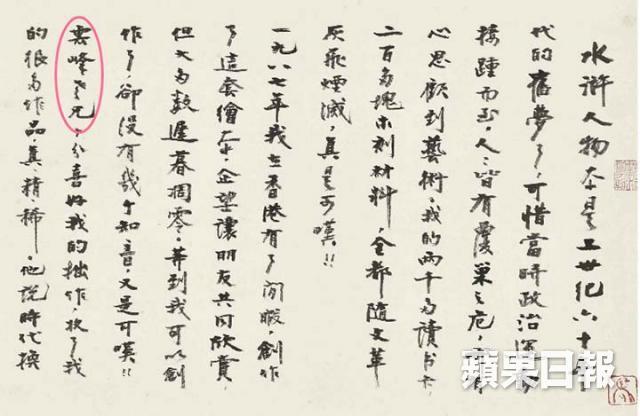 水滸人物本是上世紀六十年
代的舊夢了，可惜當時政治
接踵而至，人人皆有覆巢之危，
心思顧到藝術。我的兩千多讀書卡、
二百多塊木刻材料，全都隨文革
灰飛煙滅，真是可嘆！！
一九八七年我在香港有了閒暇，創作
了這套繪本，企望讓朋友共同欣賞，
但大多數遲暮凋零。等到我可以創
作了，卻沒有幾個知音，又是可嘆！！
雲峰老兄，十分喜好我的拙作，收了我
的很多作品，真、精、稀。他說時代換
蘋果日報